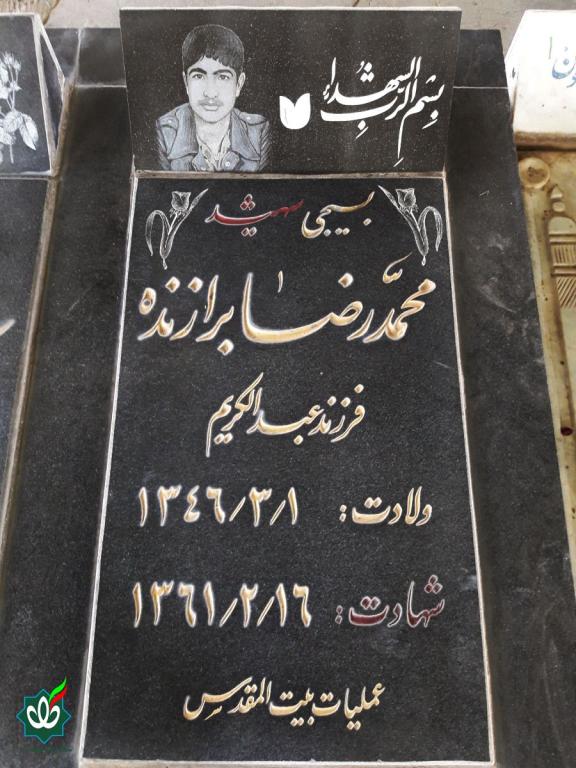 بسم الرب الشهداء
بسیجی شهید
محمدرضا برازنده
فرزند عبدالکریم
ولادت: ۱۳٤۶/۳/۱
شهادت: ۱۳۶۱/۲/۱۶
عملیات بیت المقدس